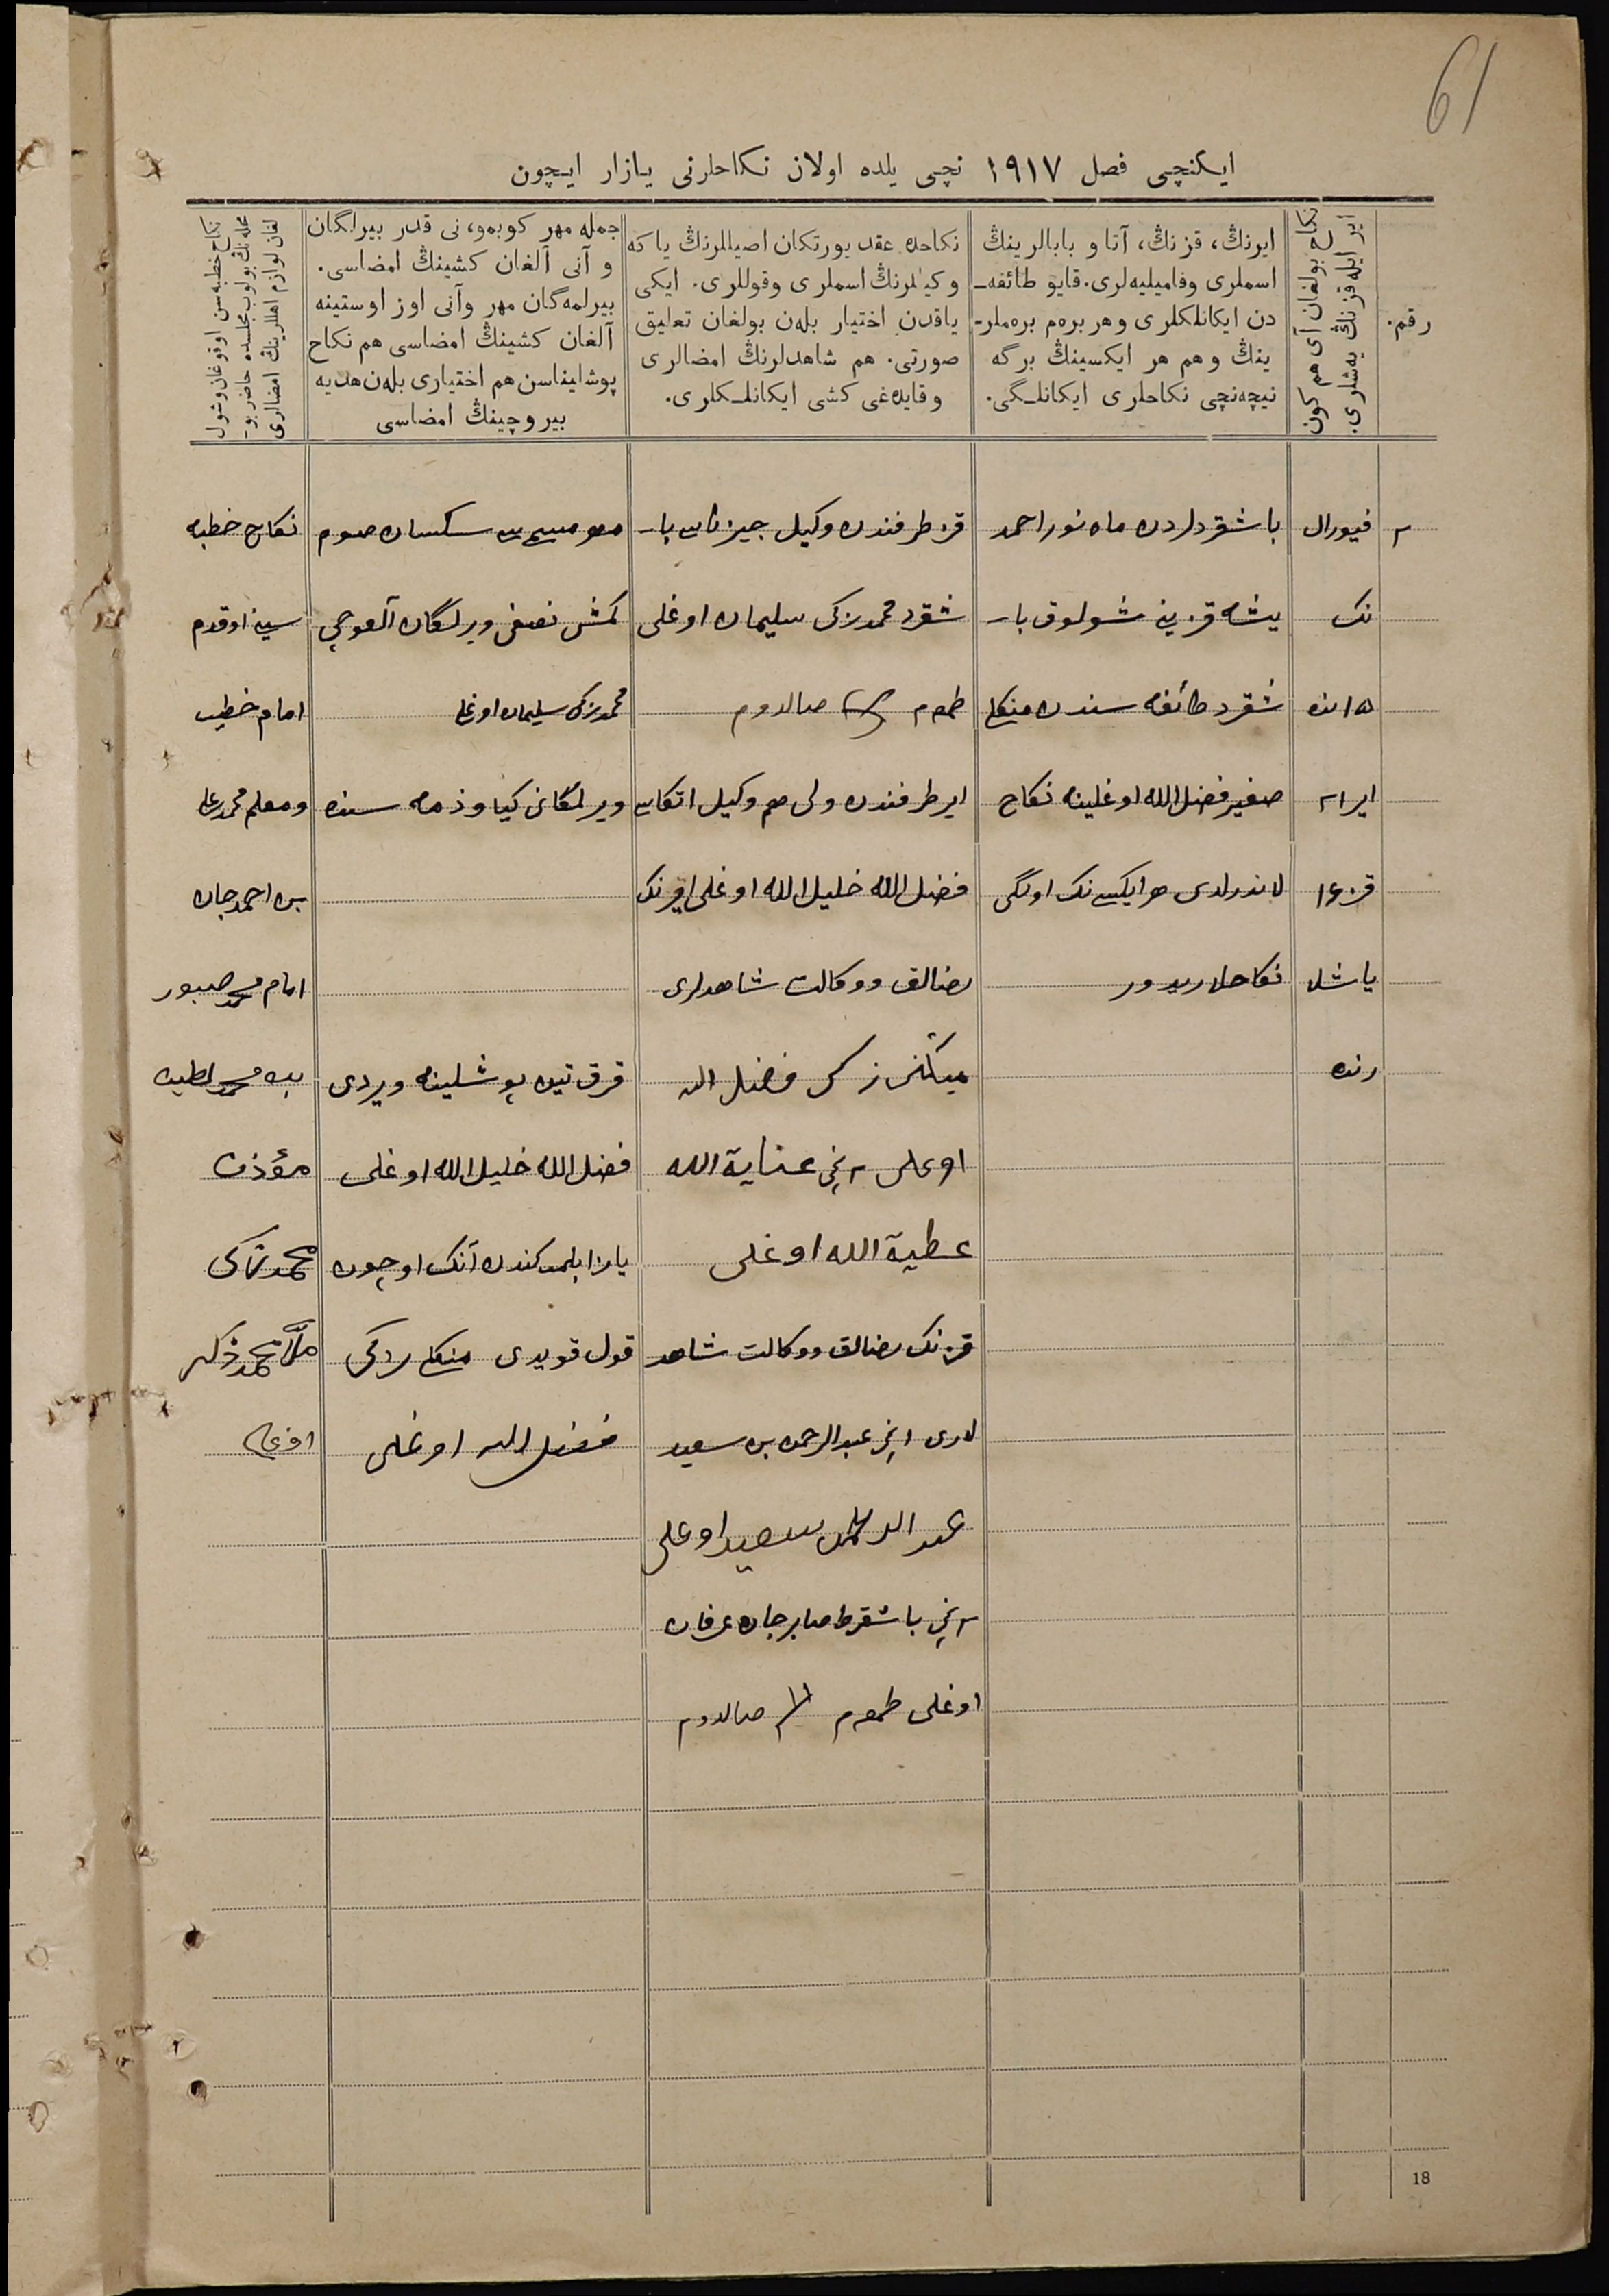 61
ایکنچی فصل ۱۹۱۷ نچی یلده اولان نکاحلرنی یازار ایچون
رقم.
نکاح بولغان آی هم کون
ایر ایله قزنڭ یەشلری.
ایرنڭ، قزنڭ، آتا و بابالرینڭ
اسملری وفامیلیەلری. قایو طائفه‌ـ
دن ایکانلکلری و هر برەم برەملر-
ینڭ و هم هر ایکسینڭ برگه
نیچه‌نچی نکاحلری ایکانلـگی.
نکاحده عقد یورتکان اصیللرنڭ یاکه
وکیللرنڭ اسملری وقوللری. ایکی
یاقدن اختیار بلەن بولغان تعلیق
صورتی. هم شاهدلرنڭ امضالری
و قایدەغی کشی ایکانلـکلری.
جمله مهر کوبمو، نی قدر بیرلگان
و آنی آلغان کشینڭ امضاسی.
بیرلمەگان مهر وآنی اوز اوستینه
آلغان کشینڭ امضاسی هم نکاح
پوشلیناسن هم اختیاری بلەن هدیه
بیروچینڭ امضاسی
نکاح خطبه‌سن اوقوغان وشول
محله‌نڭ بولوب مجلسده حاضر بو-
لغان لوازم اهللرینڭ امضالری
۲
فیورال
نک
۱۵ نده
ایر ۲۱
قز ۱۶
یاشل
رنده
باشقردلردن ماه نور احمد
یشه قزینه شولوق با-
شقرد طائفه سندن منکلی
صغیر فضل الله اوغلینه نکاح
لاندرلدی هر ایکیسی نک اولگی
نکاحلاریدور
قز طرفندن وکیل جیزناسی با-
شقرد محمدزکی سلیمان اوغلی
طمغم صالدوم
ایر طرفندن ولی هم وکیل اتکاسی
فضل الله خلیل الله اوغلی ایرنک
رضالق ووکالت شاهدلری
زکی فضل الله
اوغلی ۲ نچی عنایة الله
عطیة الله اوغلی
قزنک رضالق ووکالت شاهد
لاری ۱ نچی عبدالرحمن بن سعید
عبد الرحمن سعید اوغلی
۲ نچی باشقرط صابرجان عرفان
اوغلی طمغم صالدوم
مهر مسمی سی سکسان صوم
کمش نصفی ویرلگان آلغوچی
محمدزکی سلیمان اوغلی
ویرلمگانی کیاو ذمه سنده
قرق تین پوشلینه ویردی
فضل الله خلیل الله اوغلی
یازا بلمدکندن آنک اوچون
قول قویدی منکلی زکی
فضل الله اوغلی
نکاح خطبه
سین اوقدم
امام خطیب
ومعلم محمدعلی
بن احمدجان
امام محمدصبور
بن محمدلطیف
مؤذن
محمدزاکی
ملا محمدذاکر
اوغلی
18